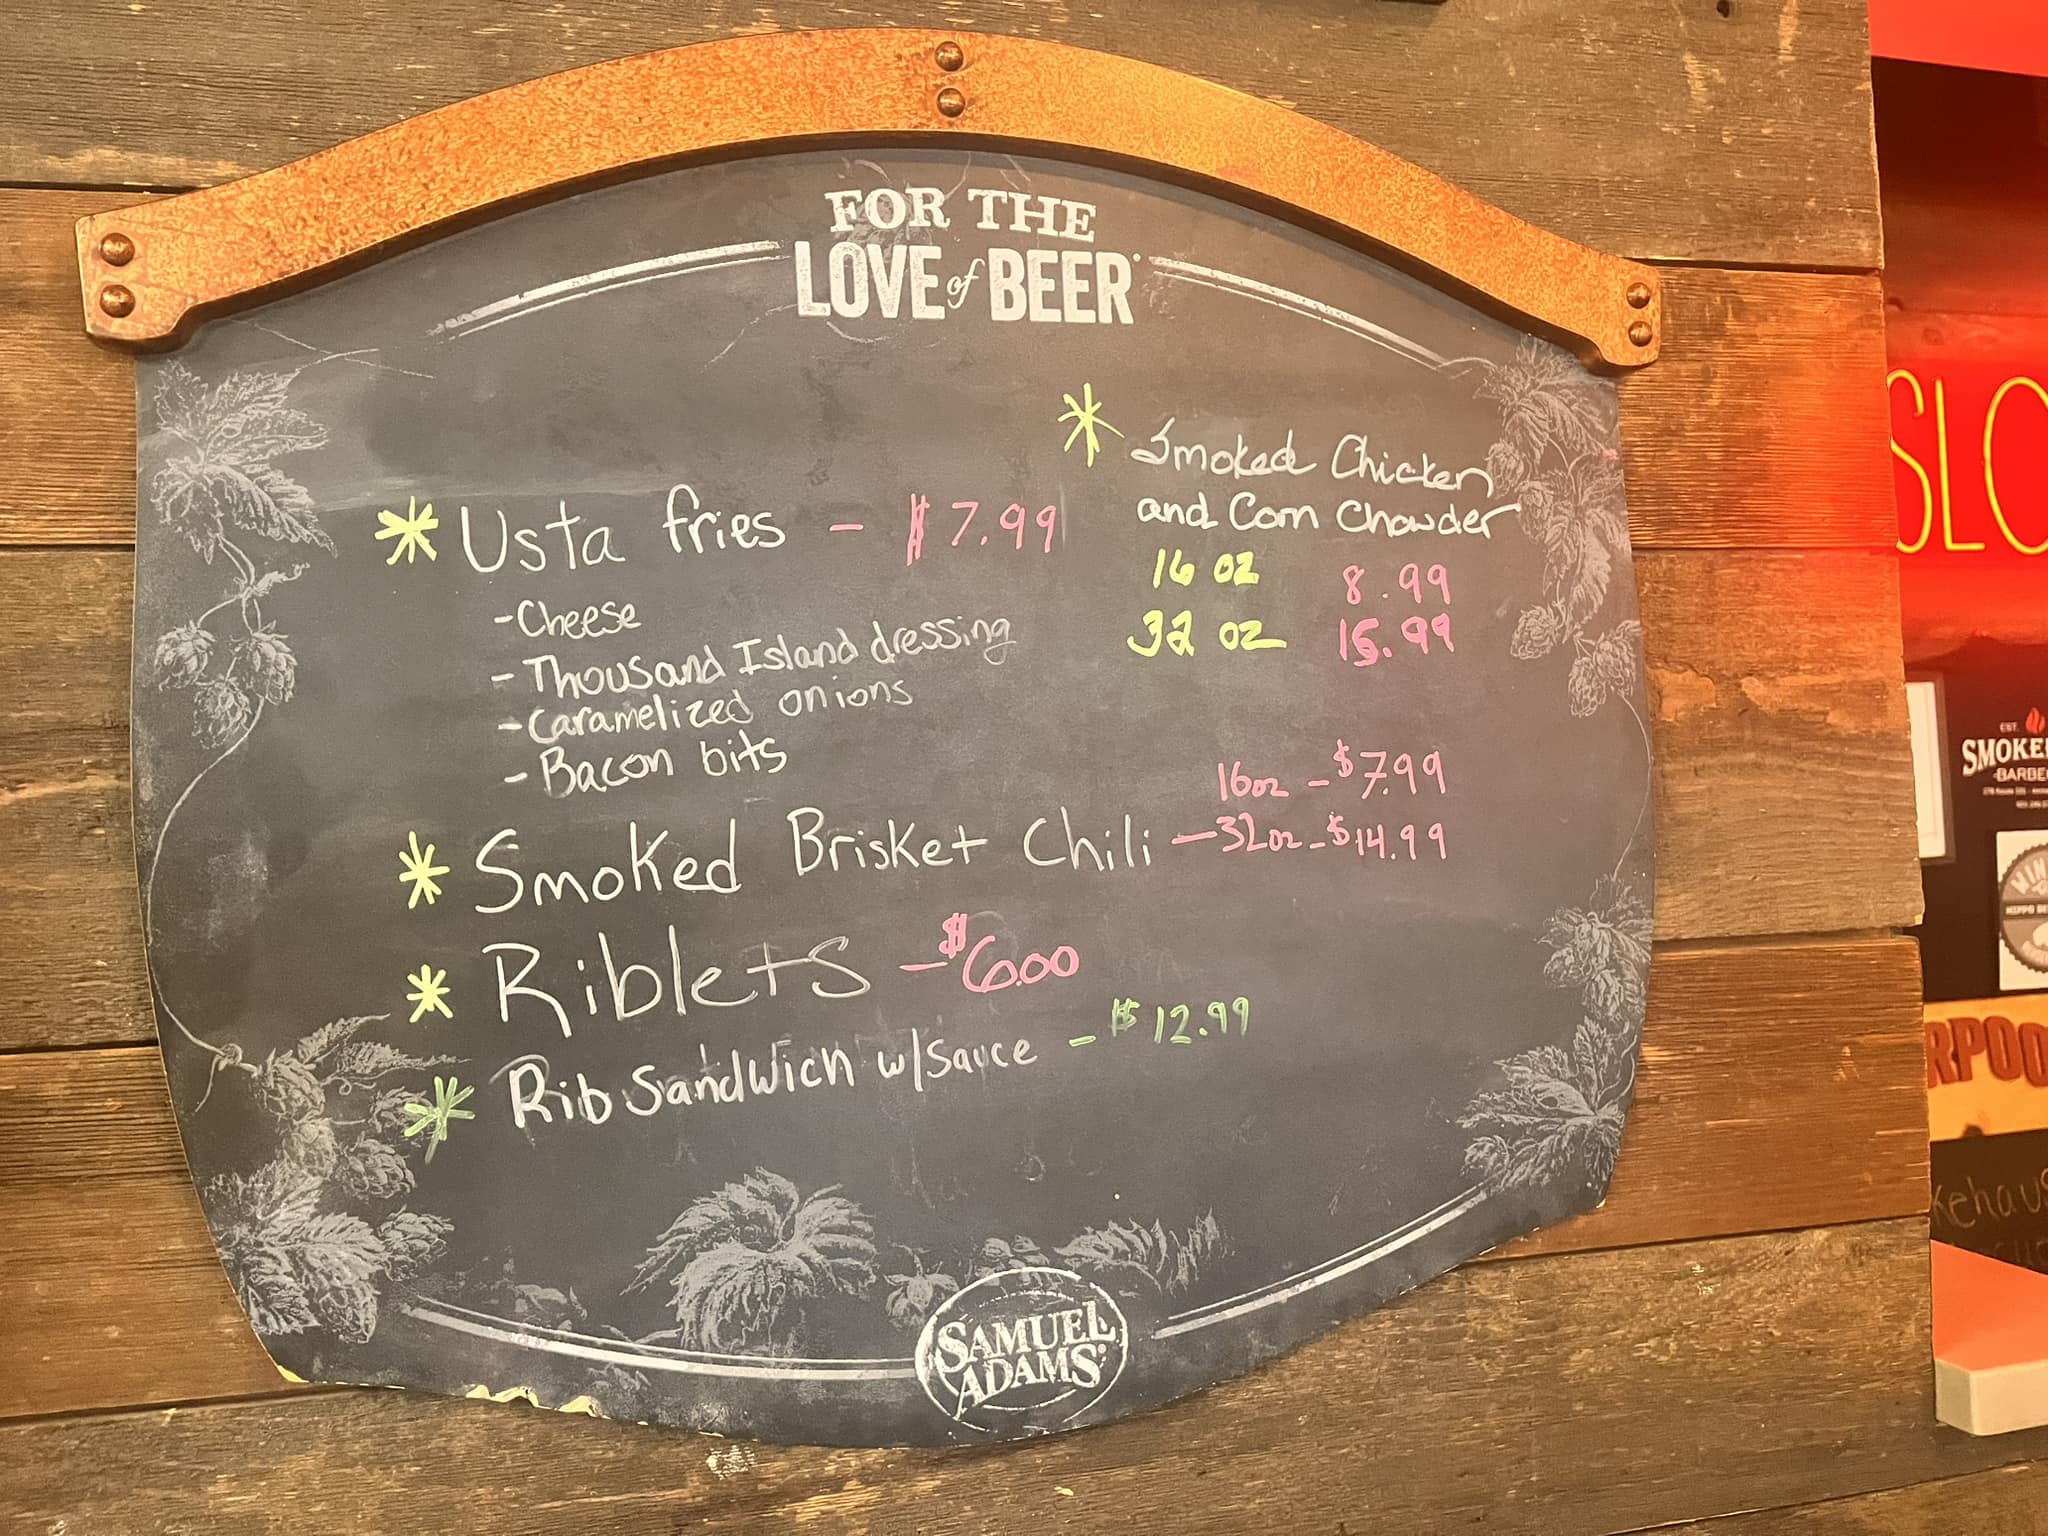 FOR THE
LOVE of BEER
* Usta fries - $7.99
- Cheese
- Thousand Island dressing
- Caramelized onions
- Bacon bits
* Smoked Chicken
and Corn Chowder
16 oz 8.99
32 oz 15.99
* Smoked Brisket Chili
16oz - $7.99
- 32oz - $14.99
* Riblets - $6.00
* Rib Sandwich w/sauce - $12.99
SAMUEL
ADAMS
SLO
EST.
SMOKE
BARBE
WIN
HIPPO BE
RPOO
kehaus